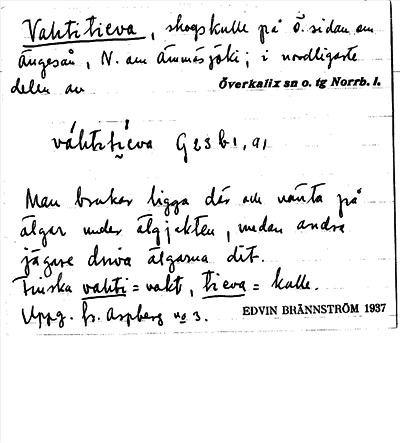 Vahtitieva, skogskulle på ö. sidan om
ängesån, N. om Ämmäsjöki; i nordligaste
delen av Överkalix sn o. tg Norrb. l.
váhtitíeva G23 b1, a1
Man brukar ligga där och vänta på
älgar under älgjakten, medan andra
jägare driva älgarna dit.
Finska vahti = vakt, tieva = kulle.
Uppg. fr. Aspberg no 3. EDVIN BRÄNNSTRÖM 1937